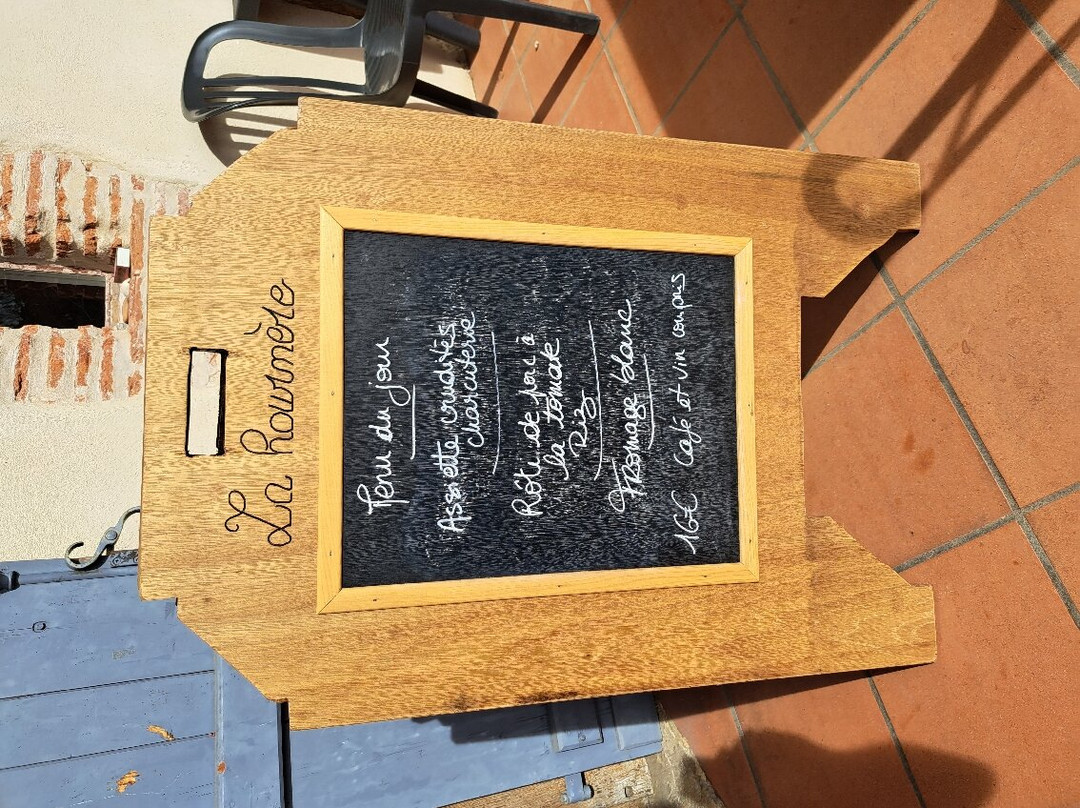 La Hournère
Menu du jour
Assiette crudités
charcuterie
Rôti de porc à
la tomate
Riz
Fromage blanc
16€ café et vin compris